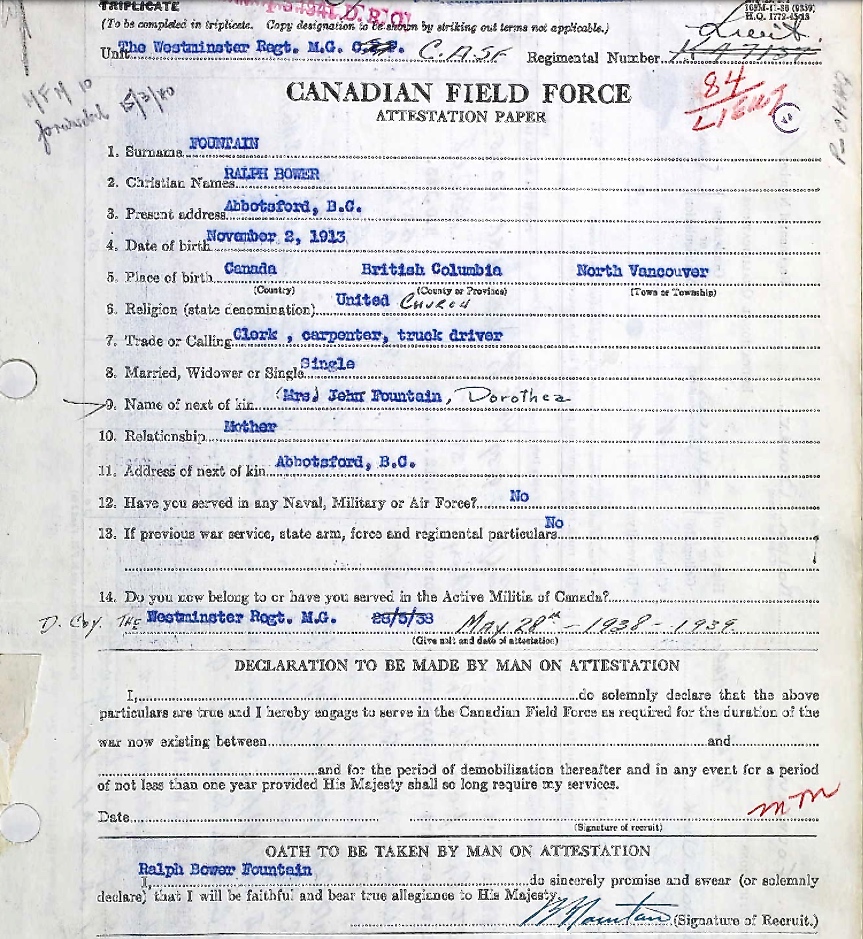 TRIPLICATE
H.Q. 1772-45-18
(To be completed in triplicate. Copy designation to be shown by striking out terms not applicable.)
Lieut.
Unit The Westminster Regt. M.G. C.A.S.F Regimental Number
84
LIEUT
MFM 10
forwarded 15/3/40
CANADIAN FIELD FORCE
ATTESTATION PAPER
1. Surname FOUNTAIN
2. Christian Names RALPH BOWER
3. Present address Abbotsford, B.C.
4. Date of birth November 2, 1913
5. Place of birth Canada British Columbia North Vancouver
(Country) (County or Province) (Town or Township)
6. Religion (state denomination) United CHURCH
7. Trade or Calling Clerk , carpenter, truck driver
8. Married, Widower or Single Single
9. Name of next of kin (Mrs.) John Fountain, Dorothea
10. Relationship Mother
11. Address of next of kin Abbotsford, B.C.
12. Have you served in any Naval, Military or Air Force? No
13. If previous war service, state arm, force and regimental particulars No
14. Do you now belong to or have you served in the Active Militia of Canada?
D. Coy. THE Westminster Regt. M.G. 28/5/38 May 28th - 1938 - 1939
(Give unit and date of attestation)
DECLARATION TO BE MADE BY MAN ON ATTESTATION
I, do solemnly declare that the above
particulars are true and I hereby engage to serve in the Canadian Field Force as required for the duration of the
war now existing between and
and for the period of demobilization thereafter and in any event for a period
of not less than one year provided His Majesty shall so long require my services.
Date
(Signature of recruit)
OATH TO BE TAKEN BY MAN ON ATTESTATION
Ralph Bower Fountain
I, do sincerely promise and swear (or solemnly
declare) that I will be faithful and bear true allegiance to His Majesty.
Fountain (Signature of Recruit.)